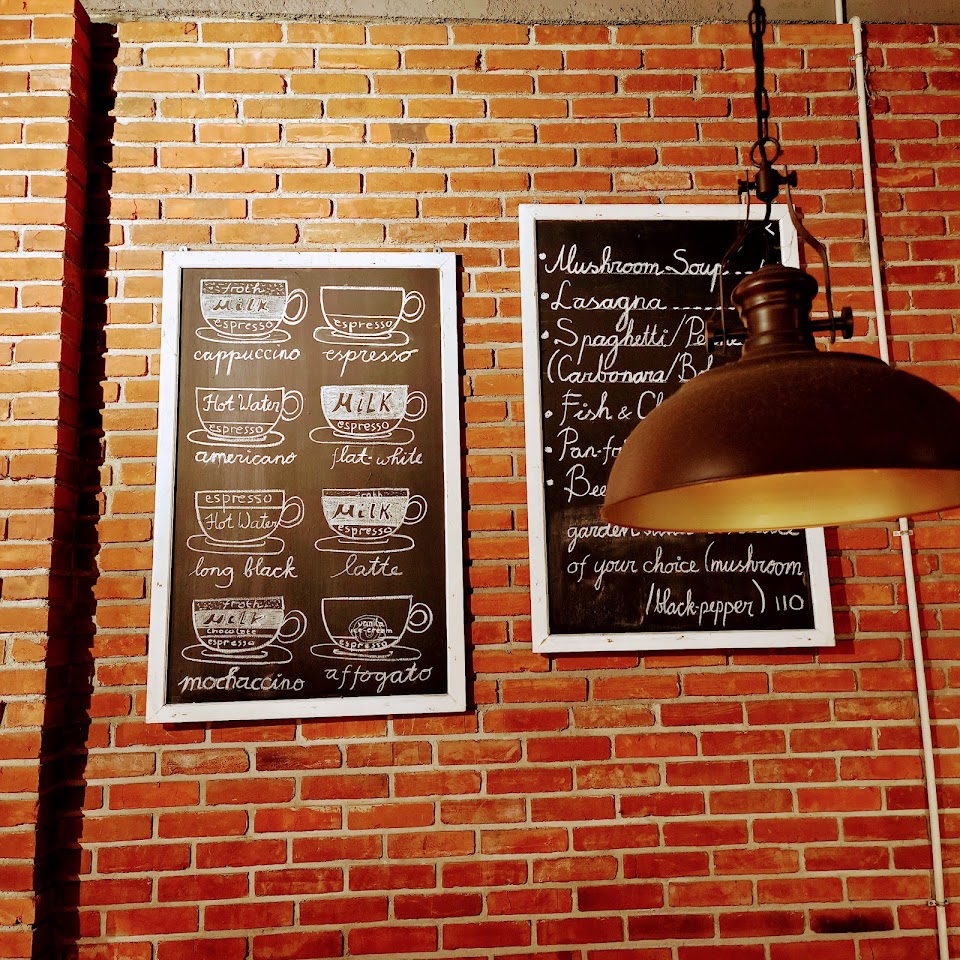 froth
MILK
espresso
cappuccino
espresso
espresso
Hot Water
espresso
americano
MILK
espresso
flat-white
espresso
Hot Water
long black
froth
MILK
espresso
latte
froth
MILK
chocolate
espresso
mochaccino
vanilla
ice-cream
espresso
affogato
Mushroom Soup
Lasagna
Spaghetti/
(Carbonara/
Fish &
garden
of your choice (mushroom
/black-pepper) 110